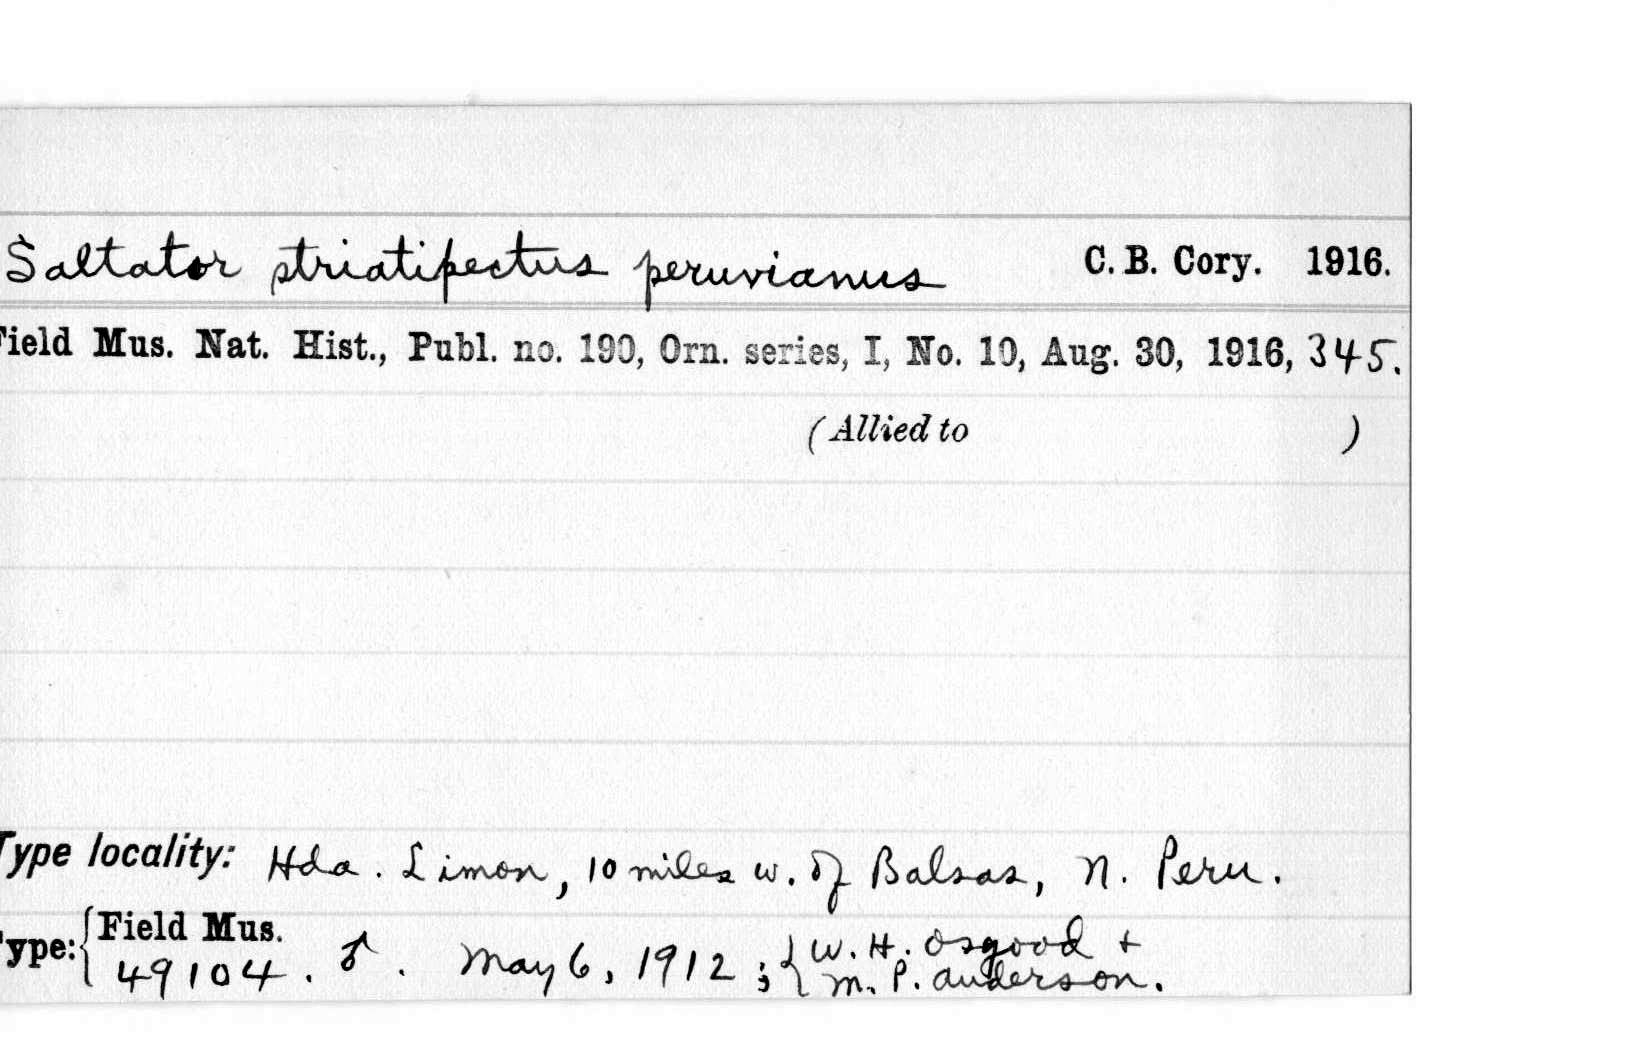 Saltator striatipectus peruvianus C. B. Cory. 1916.
Field Mus. Nat. Hist., Publ. no. 190, Orn. series, I, No. 10, Aug. 30, 1916, 345.
(Allied to )
Type locality: Hda. Limon, 10 miles w. of Balsas, N. Peru.
Type: { Field Mus. 49104. ♂. May 6, 1912; { W. H. Osgood +
M. P. Anderson.